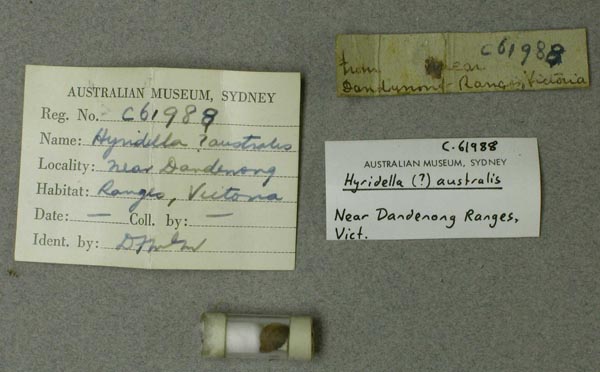 AUSTRALIAN MUSEUM, SYDNEY
Reg. No. C61988
Name: Hyridella ? australis
Locality: Near Dandenong
Habitat: Ranges, Victoria
Date: — Coll. by: —
Ident. by:
C61988
from near
Dandenong Ranges, Victoria
C.61988
AUSTRALIAN MUSEUM, SYDNEY
Hyridella (?) australis
Near Dandenong Ranges,
Vict.